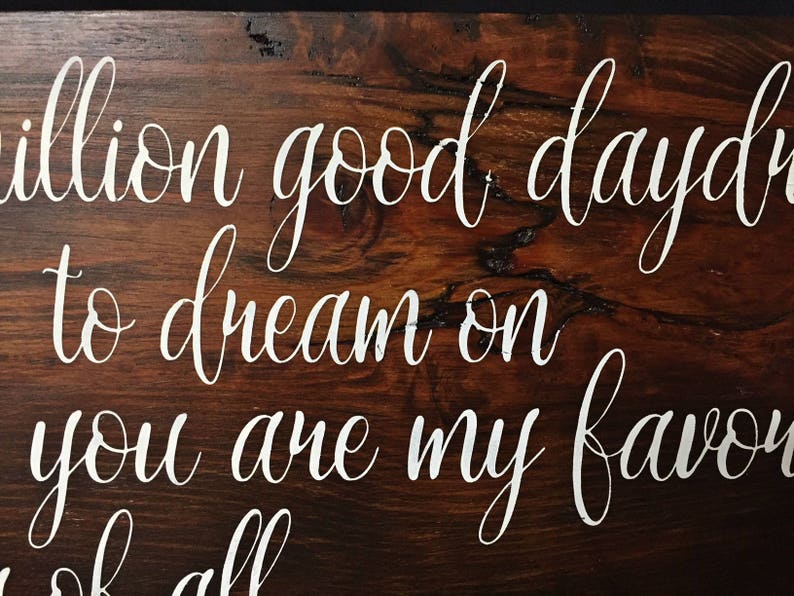 illion good daydr
to dream on
you are my favor
of all